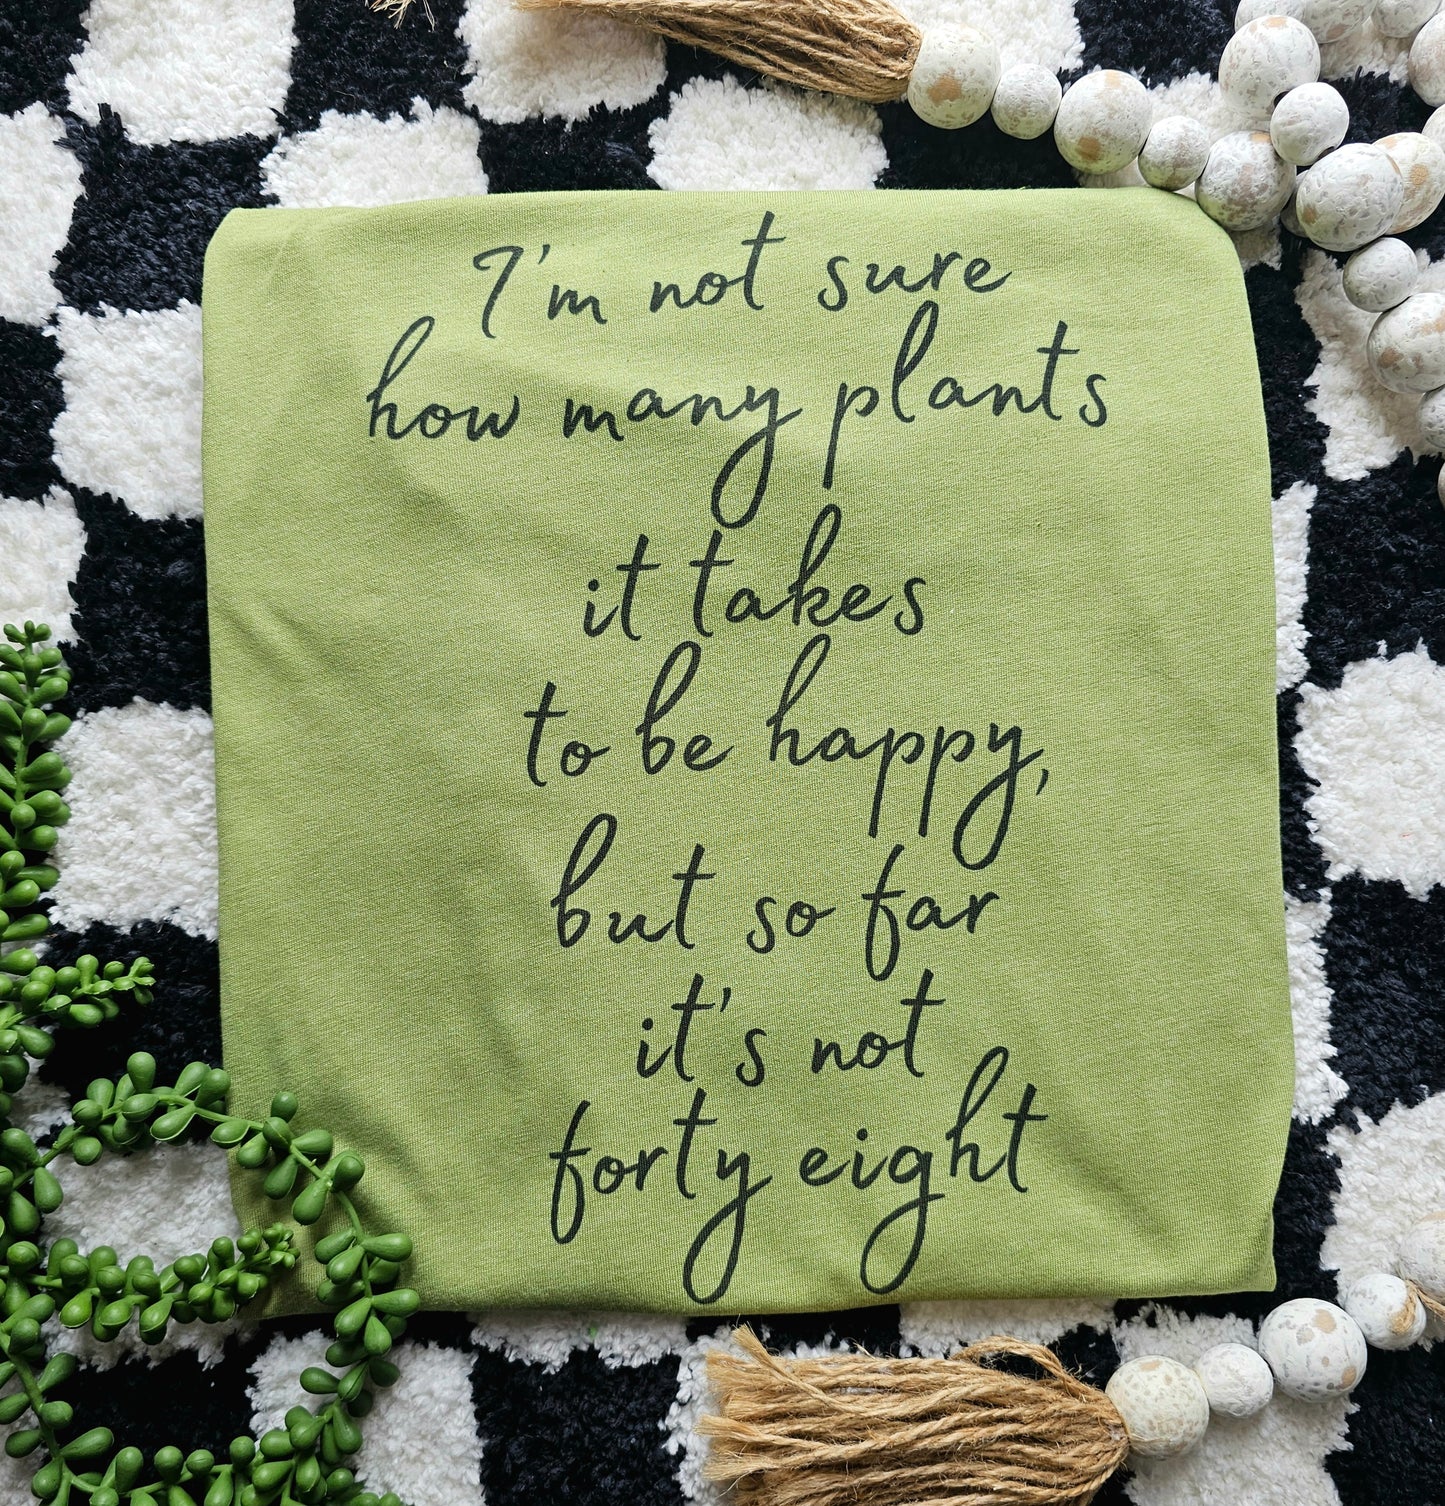 I'm not sure
how many plants
it takes
to be happy,
but so far
it's not
forty eight